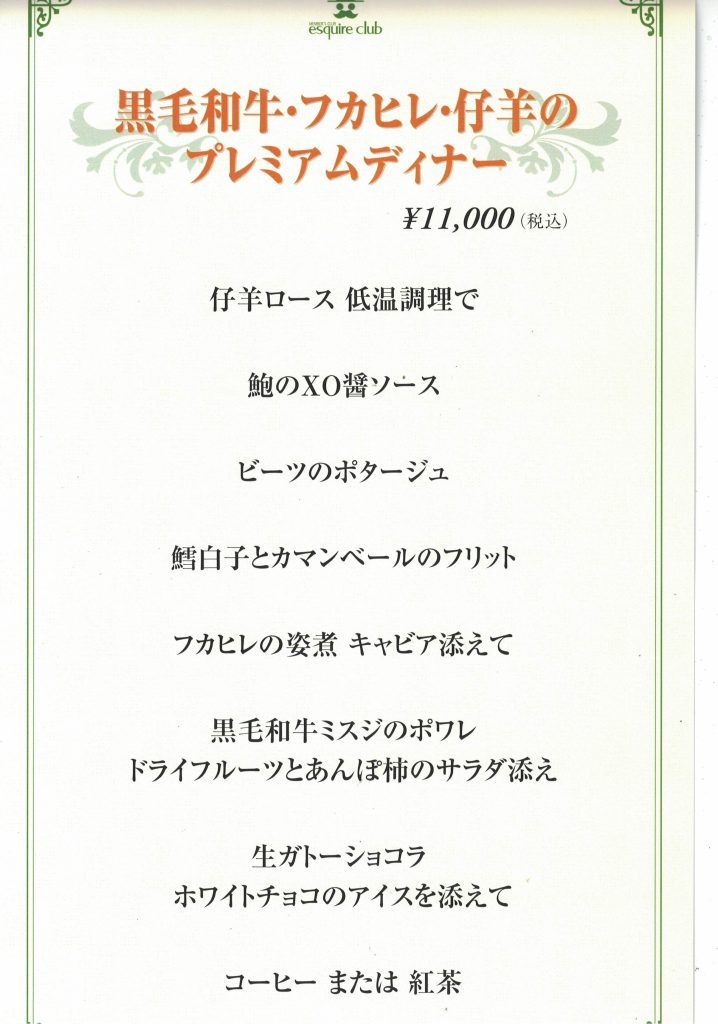 MEMBER'S CLUB
esquire club
黒毛和牛・フカヒレ・仔羊の
プレミアムディナー
¥11,000（税込）
仔羊ロース 低温調理で
鮑のXO醤ソース
ビーツのポタージュ
鱈白子とカマンベールのフリット
フカヒレの姿煮 キャビア添えて
黒毛和牛ミスジのポワレ
ドライフルーツとあんぽ柿のサラダ添え
生ガトーショコラ
ホワイトチョコのアイスを添えて
コーヒー または 紅茶